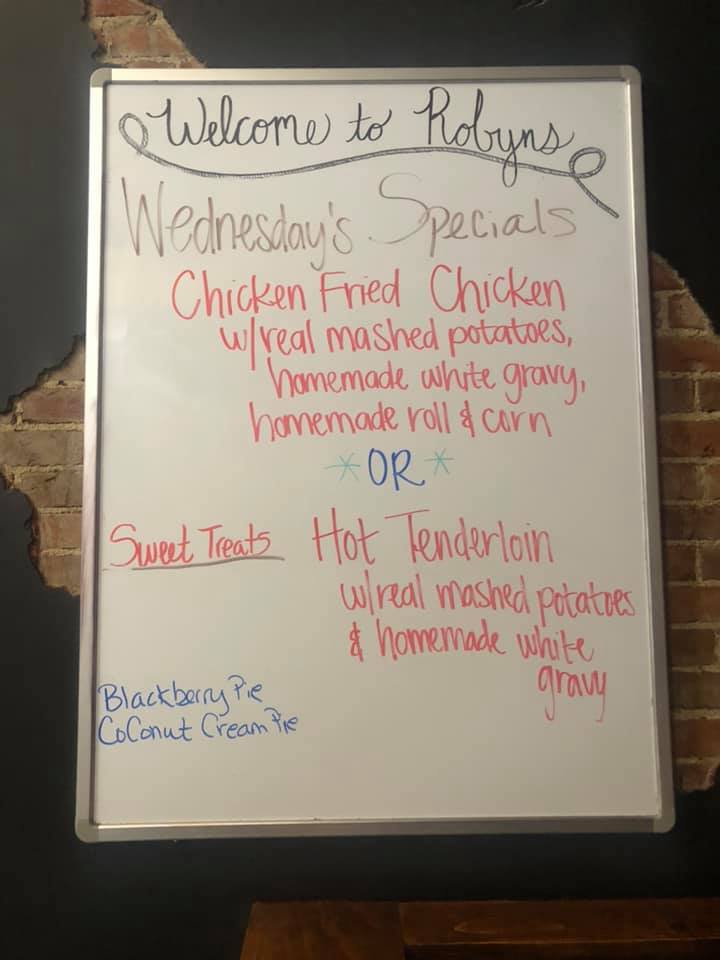 Welcome to Robyns
Wednesday's Specials
Chicken Fried Chicken
w/real mashed potatoes,
homemade white gravy,
homemade roll & corn
*OR*
Hot Tenderloin
w/real mashed potatoes
& homemade white
gravy
Sweet Treats
Blackberry Pie
Coconut Cream Pie